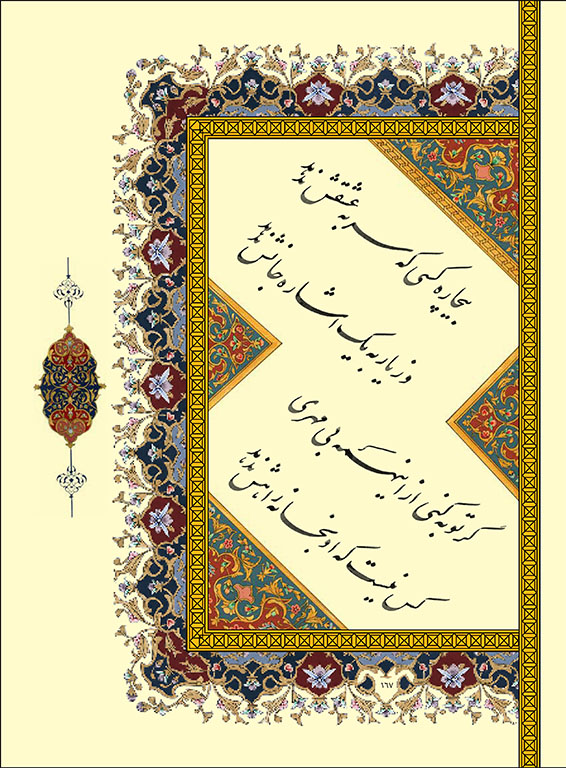 بیچاره کسی که سر به عشقش ندهد
وز یار به یک اشاره جانش ندهد
گر توبه کنی از اینهمه بی مهری
کس نیست که او بخانه راهش ندهد
١٦٧